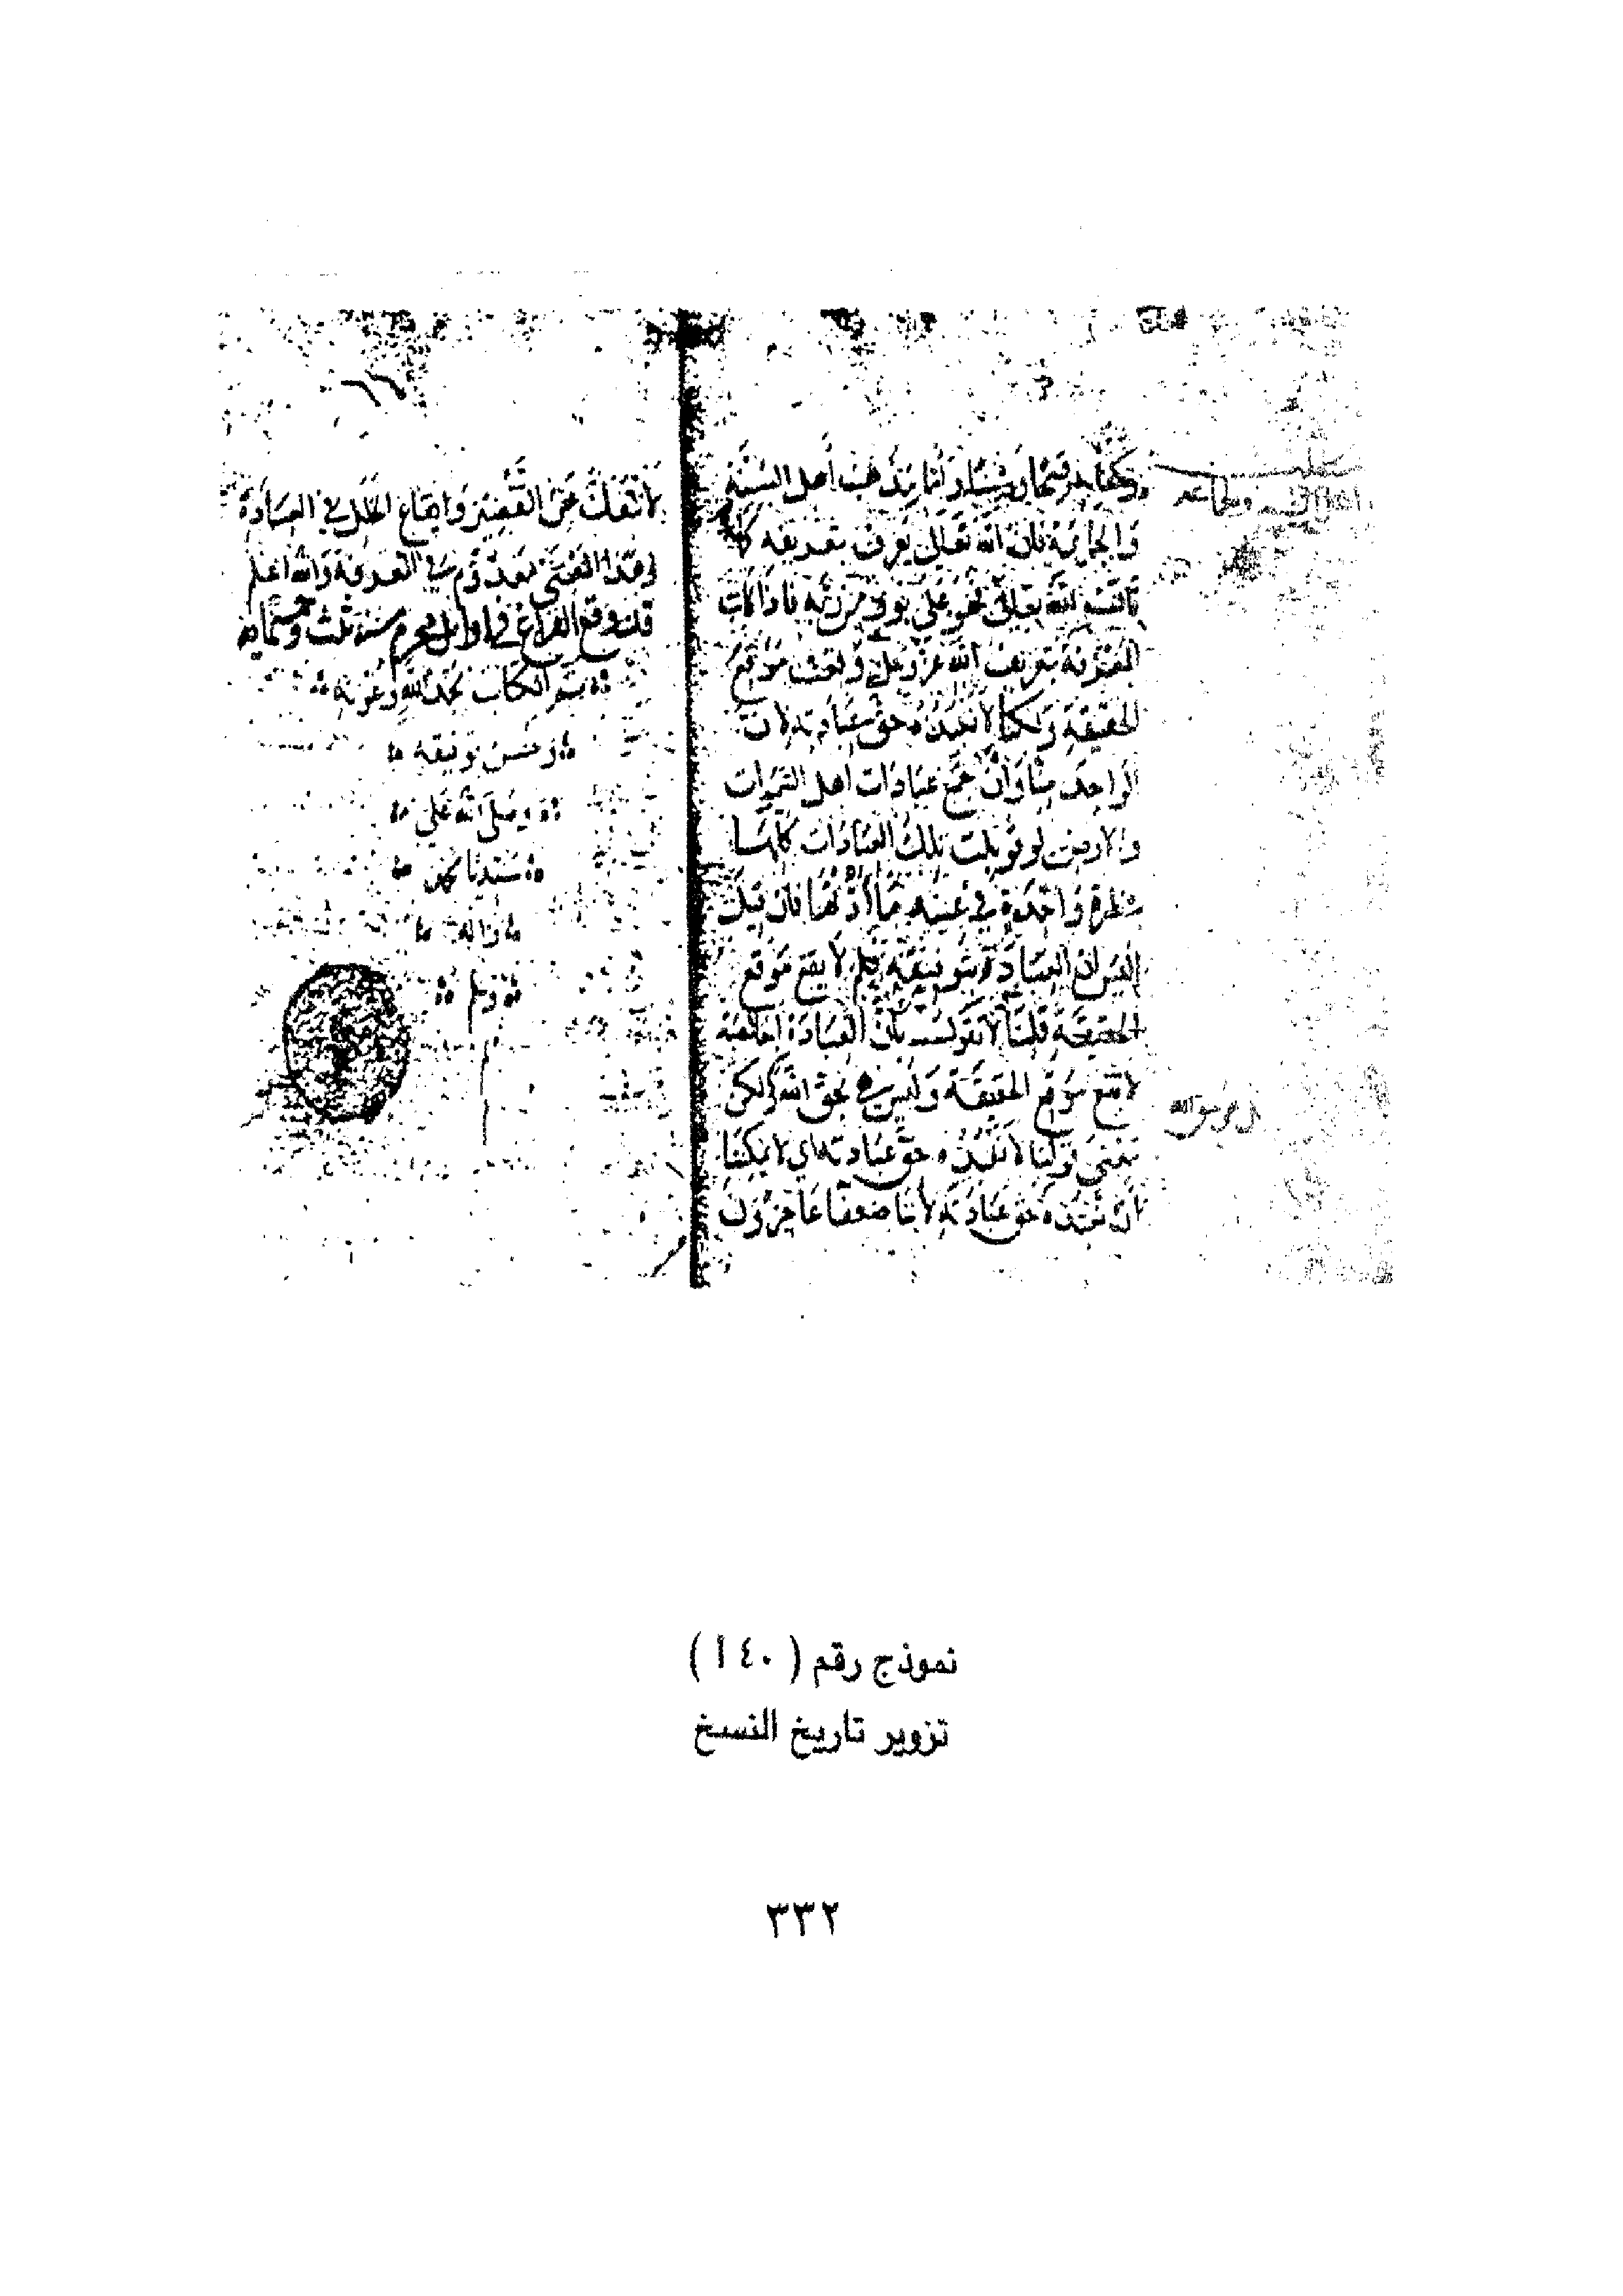 أهل السنة والجماعة
وكفاهم فتمان وشنار أنا مذهب أهل السنة
والجماعة بأن الله تعالى يعرف بتعريفه كما
قال الله تعالى فهو على نور من ربه فاذا كانت
المعرفة بتعريف الله عز وجل وقعت موقع
الحقيقة ولكنا لا نعبده حق عبادته لان
الواحد منا وان جمع عبادات اهل السموات
والارض لو قوبلت تلك العبادات كلها
نظرة واحدة في عينيه ما أدلها فان قيل
اليس ان العبادة بتوفيقه فلم لا يقع موقع
الحقيقة قلنا لا نقول بأن العبادة الخالصة
لا تقع موقع الحقيقة وليس بحق الله ولكن
معنى قولنا لا نعبده حق عبادته اي لا يمكننا
أن نعبده حق عبادته لأنا ضعفا عاجزون
لا ننفك عن التقصير وايقاع الخلل في العبادة
وهذا المعنى معدوم في المعرفة والله اعلم
قد وقع الفراغ في اوايل محرم سنة ثلث وخمسمايه
تم الكتاب بحمد الله وعونه
وحسن توفيقه
وصلى الله على
سيدنا محمد
واله
وسلم
نموذج رقم (١٤٠)
تزوير تاريخ النسخ
٣٣٢